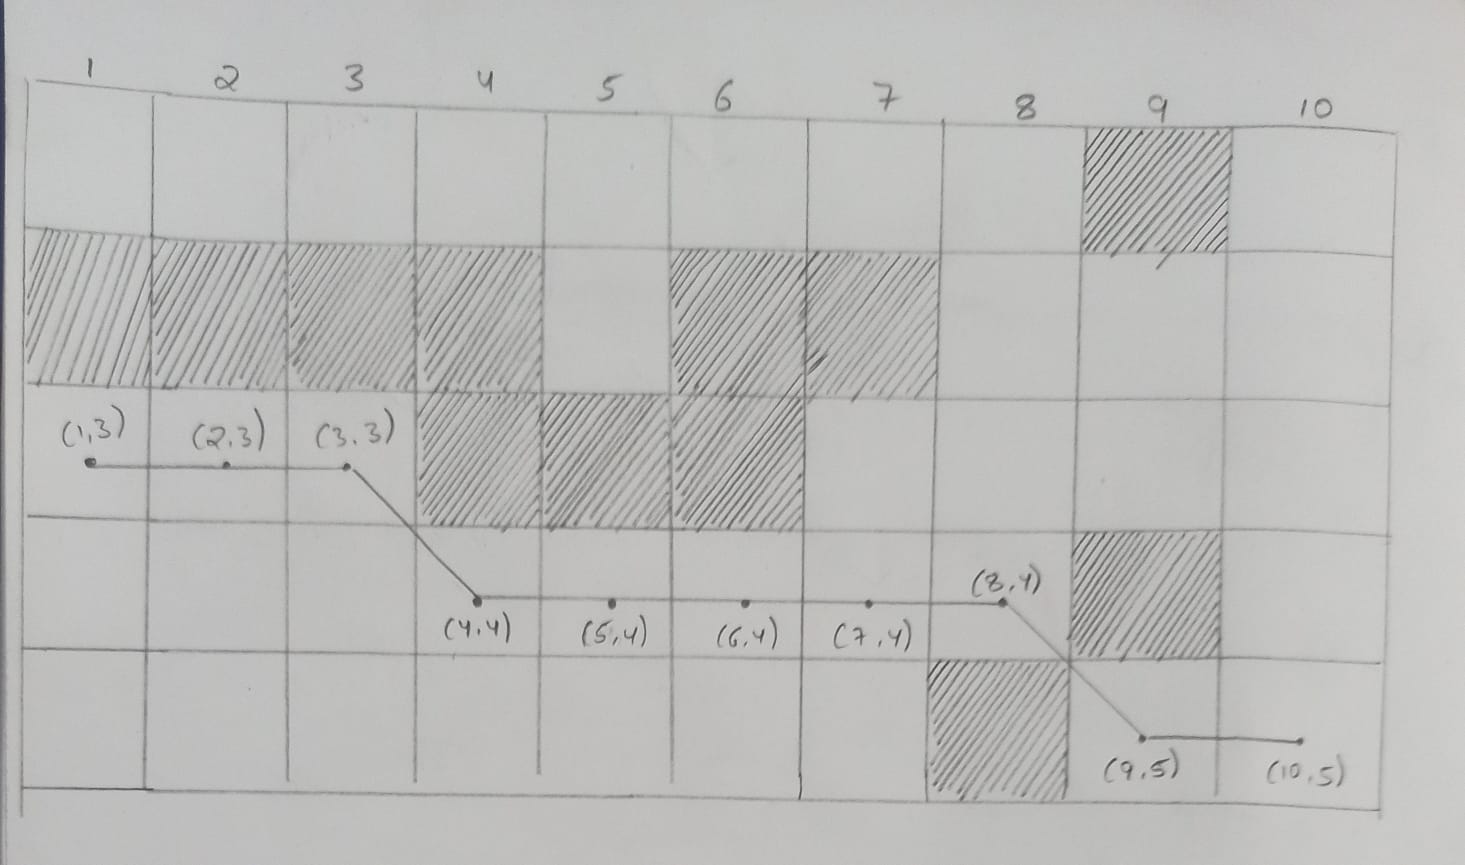 1 2 3 4 5 6 7 8 9 10
(1,3) (2,3) (3,3)
(4,4) (5,4) (6,4) (7,4) (8,4)
(9,5) (10,5)